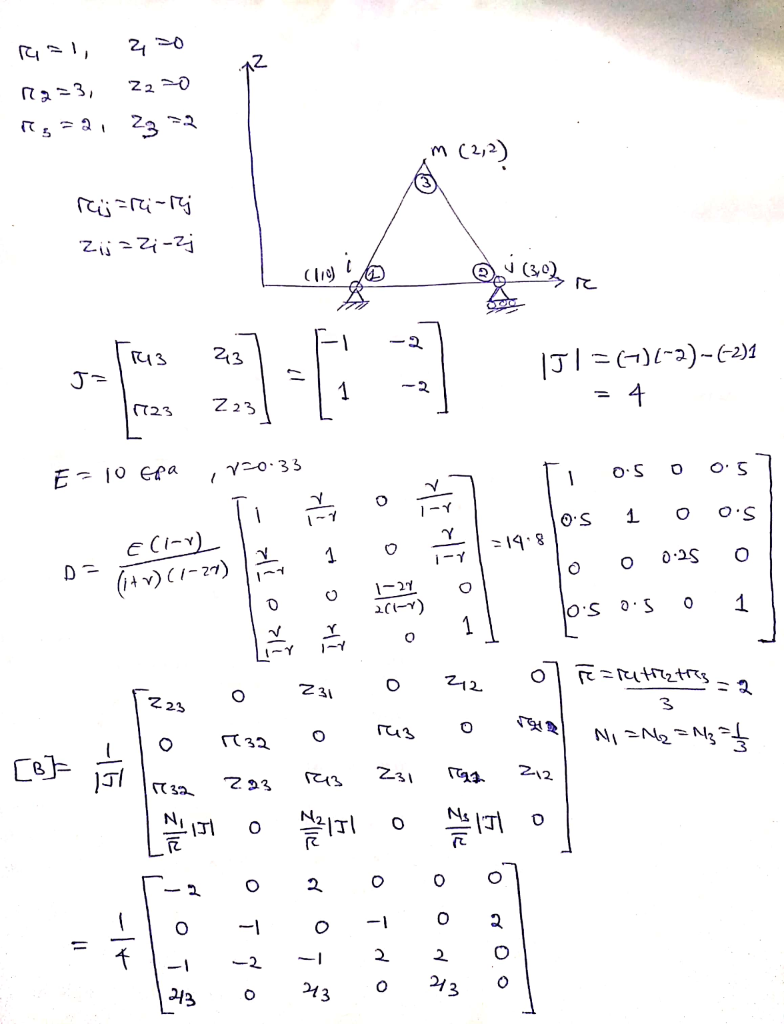 r1 = 1, z1 = 0
r2 = 3, z2 = 0
r3 = 2, z3 = 2
rij = ri - rj
zij = zi - zj
z
m (2,2)
3
(1,0) i 1 2 j (3,0) r
J = [ r13 z13 ; r23 z23 ] = [ -1 -2 ; 1 -2 ]
|J| = (-1)(-2) - (-2)1
= 4
E = 10 GPa, ν = 0.33
D = E(1-ν) / (1+ν)(1-2ν) [ 1 ν/1-ν 0 ν/1-ν ; ν/1-ν 1 0 ν/1-ν ; 0 0 1-2ν/2(1-ν) 0 ; ν/1-ν ν/1-ν 0 1 ] = 14.8 [ 1 0.5 0 0.5 ; 0.5 1 0 0.5 ; 0 0 0.25 0 ; 0.5 0.5 0 1 ]
r̄ = r1+r2+r3 / 3 = 2
N1 = N2 = N3 = 1/3
[B] = 1/|J| [ z23 0 z31 0 z12 0 ; 0 r32 0 r13 0 r21 ; r32 z23 r13 z31 r21 z12 ; N1/r̄ |J| 0 N2/r̄ |J| 0 N3/r̄ |J| 0 ]
= 1/4 [ -2 0 2 0 0 0 ; 0 -1 0 -1 0 2 ; -1 -2 -1 2 2 0 ; 2/3 0 2/3 0 2/3 0 ]